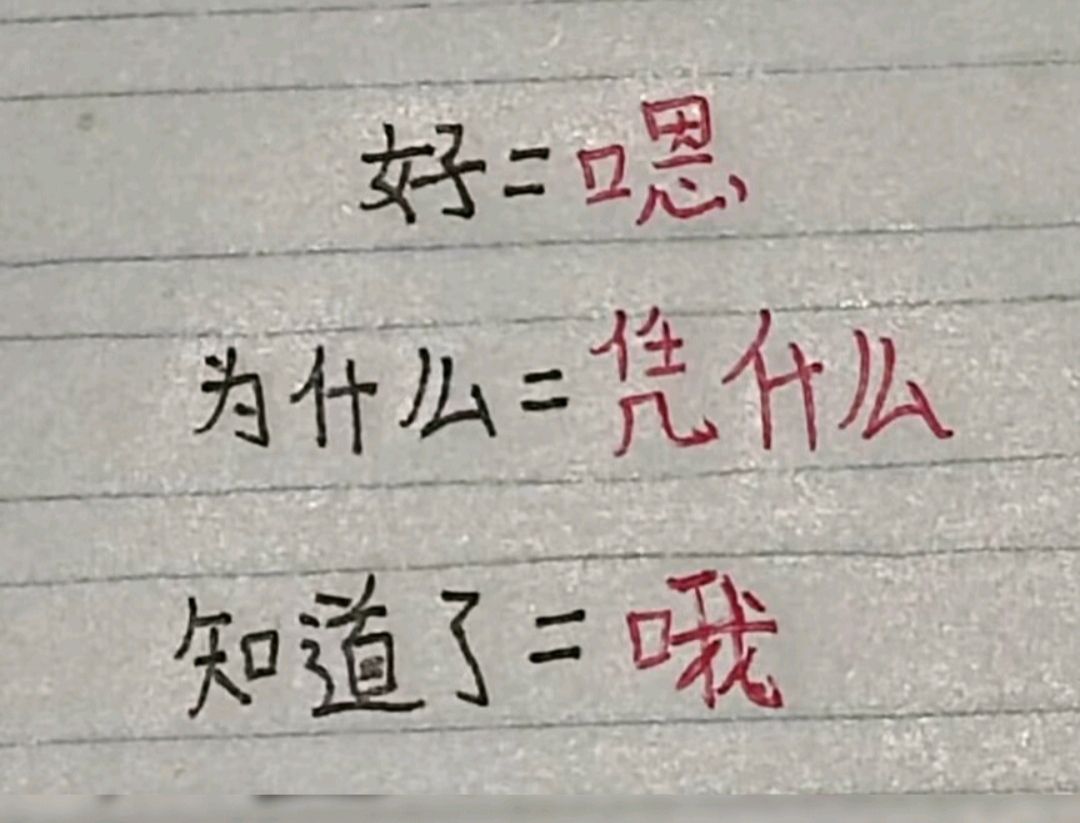 好=嗯
为什么=凭什么
知道了=哦